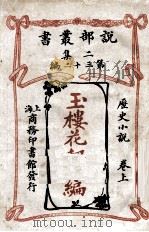 說部叢書
二集
第 十 編
歷史小說 卷上
玉樓花
編
上海商務印書館發行